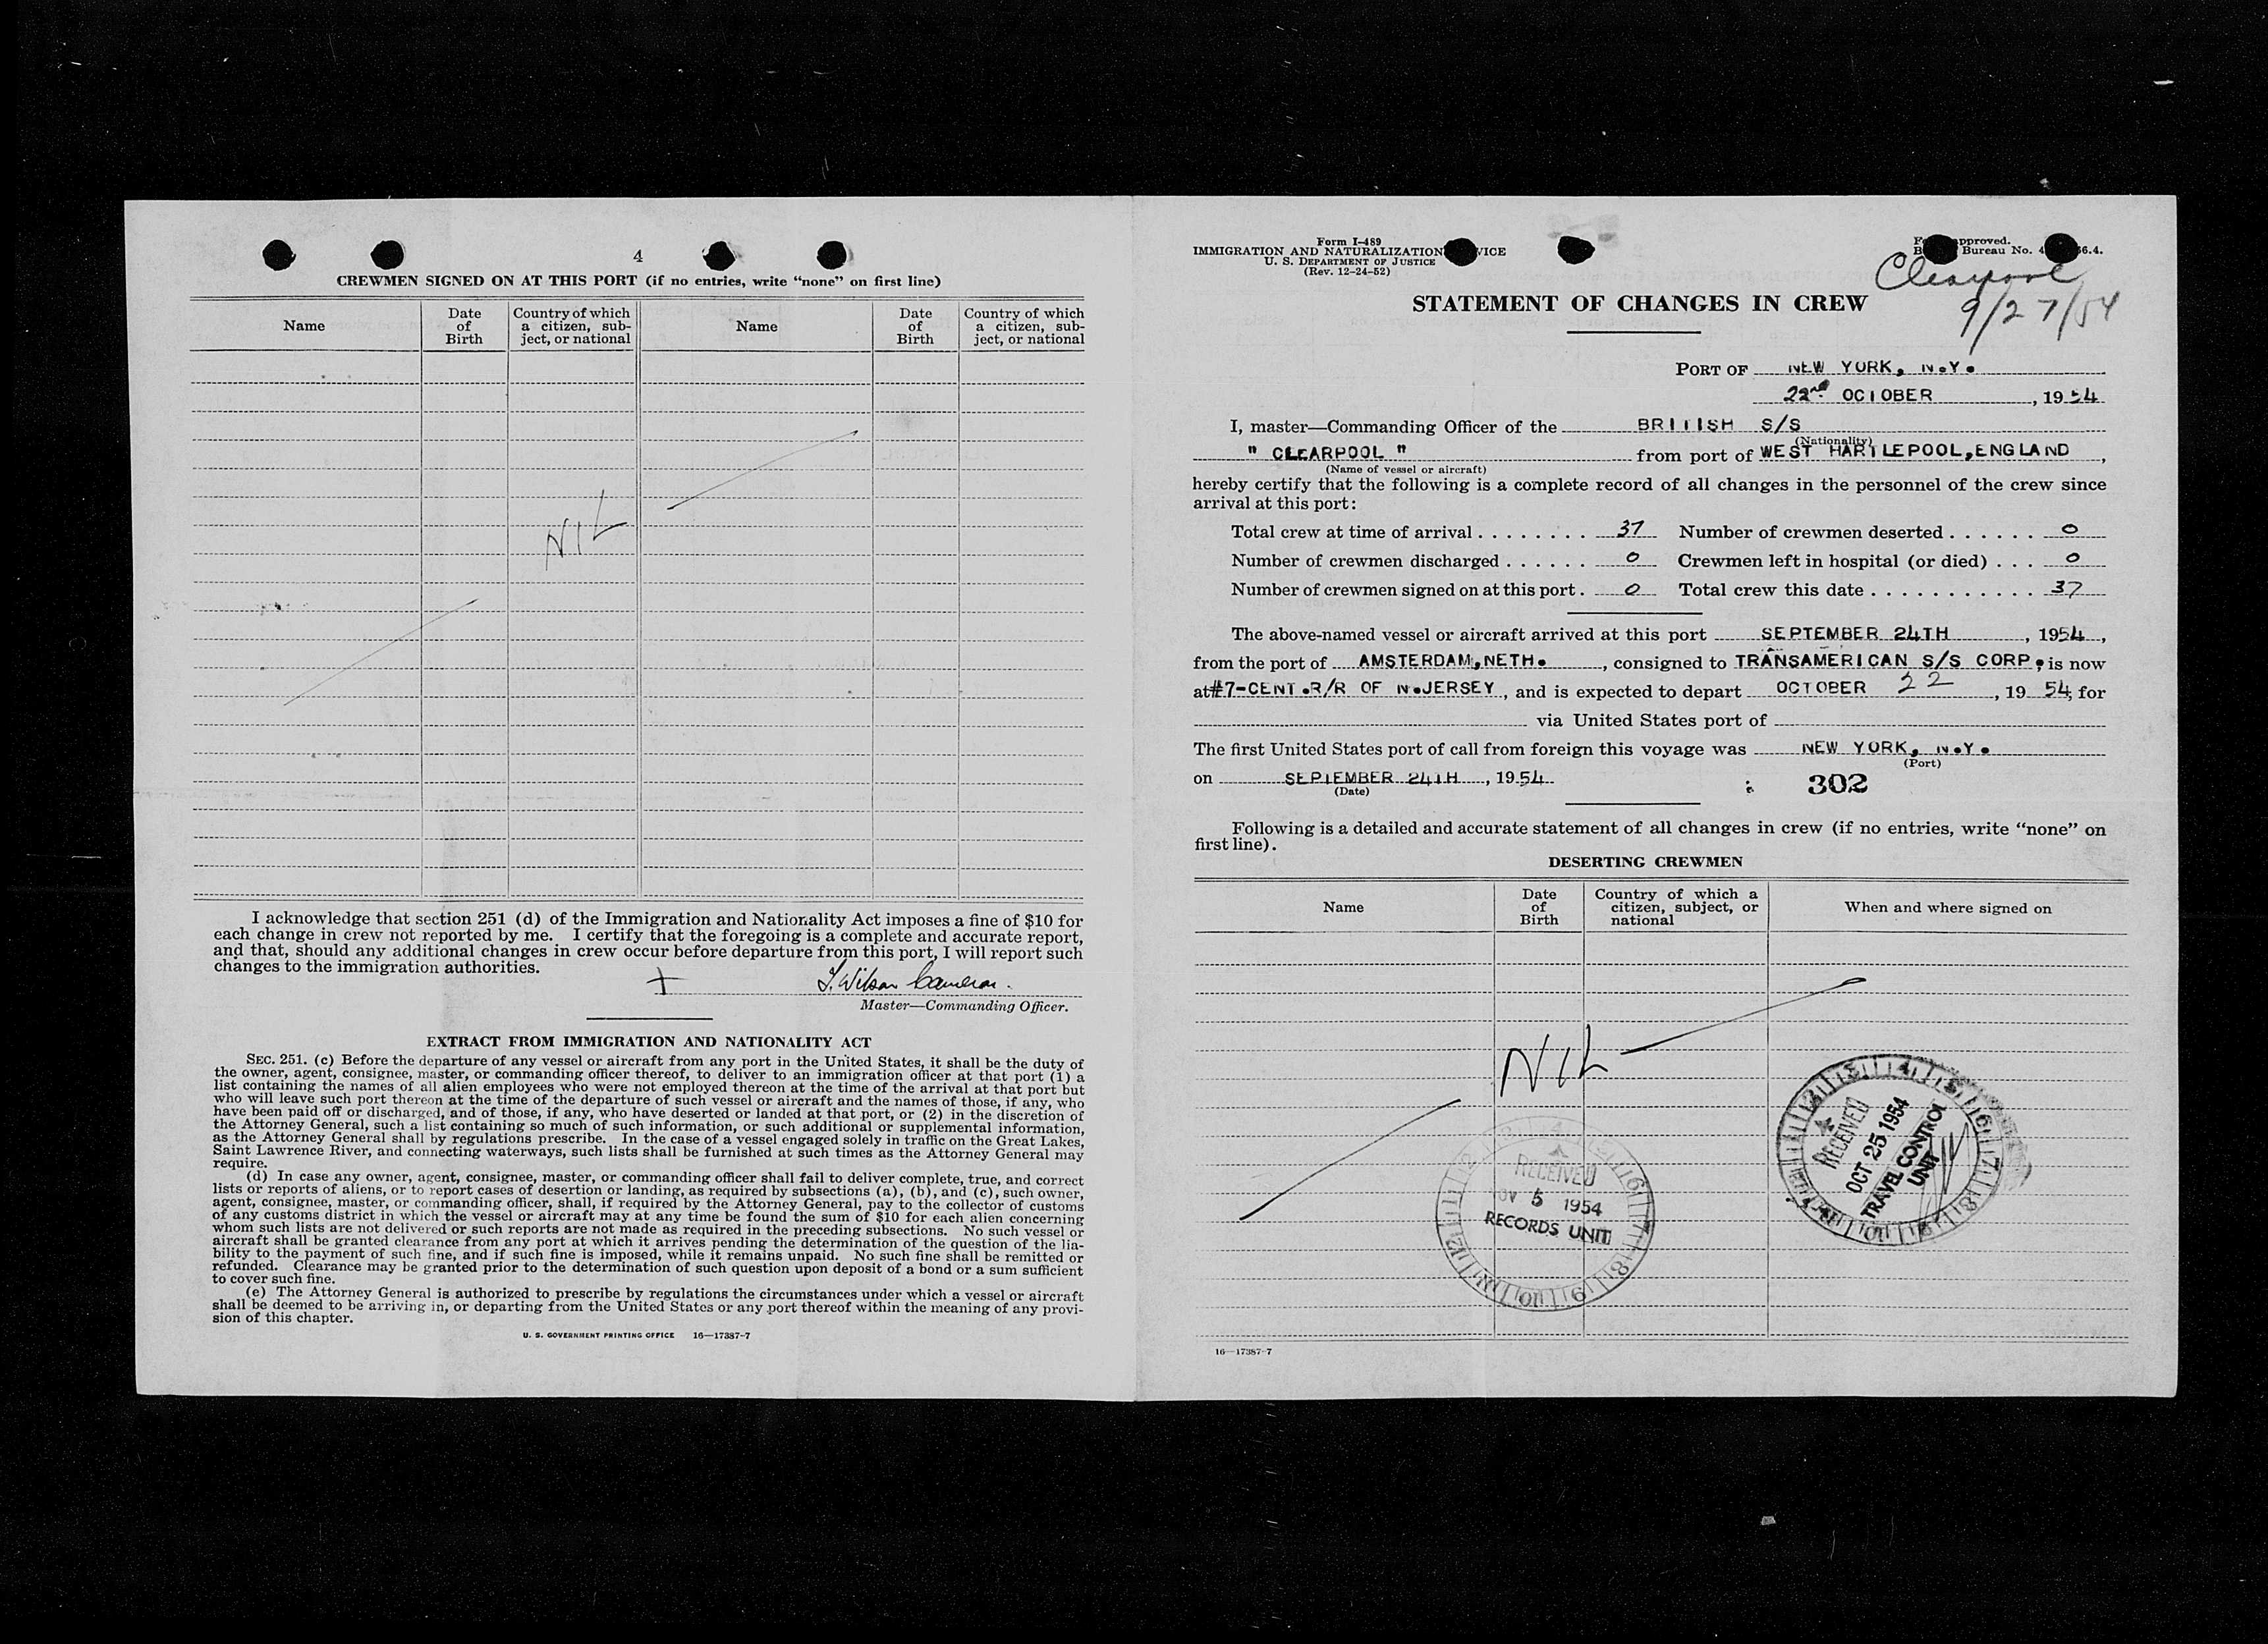 4
CREWMEN SIGNED ON AT THIS PORT (if no entries, write “none” on first line)
Name
Date of Birth
Country of which a citizen, sub-ject, or national
Name
Date of Birth
Country of which a citizen, sub-ject, or national
NIL
I acknowledge that section 251 (d) of the Immigration and Nationality Act imposes a fine of $10 for
each change in crew not reported by me. I certify that the foregoing is a complete and accurate report,
and that, should any additional changes in crew occur before departure from this port, I will report such
changes to the immigration authorities.
+ Wilson Cameron.
Master—Commanding Officer.
EXTRACT FROM IMMIGRATION AND NATIONALITY ACT
SEC. 251. (c) Before the departure of any vessel or aircraft from any port in the United States, it shall be the duty of
the owner, agent, consignee, master, or commanding officer thereof, to deliver to an immigration officer at that port (1) a
list containing the names of all alien employees who were not employed thereon at the time of the arrival at that port but
who will leave such port thereon at the time of the departure of such vessel or aircraft and the names of those, if any, who
have been paid off or discharged, and of those, if any, who have deserted or landed at that port, or (2) in the discretion of
the Attorney General, such a list containing so much of such information, or such additional or supplemental information,
as the Attorney General shall by regulations prescribe. In the case of a vessel engaged solely in traffic on the Great Lakes,
Saint Lawrence River, and connecting waterways, such lists shall be furnished at such times as the Attorney General may
require.
(d) In case any owner, agent, consignee, master, or commanding officer shall fail to deliver complete, true, and correct
lists or reports of aliens, or to report cases of desertion or landing, as required by subsections (a), (b), and (c), such owner,
agent, consignee, master, or commanding officer, shall, if required by the Attorney General, pay to the collector of customs
of any customs district in which the vessel or aircraft may at any time be found the sum of $10 for each alien concerning
whom such lists are not delivered or such reports are not made as required in the preceding subsections. No such vessel or
aircraft shall be granted clearance from any port at which it arrives pending the determination of the question of the lia-
bility to the payment of such fine, and if such fine is imposed, while it remains unpaid. No such fine shall be remitted or
refunded. Clearance may be granted prior to the determination of such question upon deposit of a bond or a sum sufficient
to cover such fine.
(e) The Attorney General is authorized to prescribe by regulations the circumstances under which a vessel or aircraft
shall be deemed to be arriving in, or departing from the United States or any port thereof within the meaning of any provi-
sion of this chapter.
U. S. GOVERNMENT PRINTING OFFICE 16—17387-7
Form I-489
IMMIGRATION AND NATURALIZATION VICE
U. S. DEPARTMENT OF JUSTICE
(Rev. 12-24-52)
pproved.
Bureau No. 4 6.4.
Clearpool
9/27/54
STATEMENT OF CHANGES IN CREW
PORT OF NEW YORK, N.Y.
22nd OCTOBER, 1954
I, master—Commanding Officer of the BRITISH S/S
(Nationality)
" CLEARPOOL " from port of WEST HARTLEPOOL,ENGLAND,
(Name of vessel or aircraft)
hereby certify that the following is a complete record of all changes in the personnel of the crew since
arrival at this port:
Total crew at time of arrival . . . . . . . . 37 Number of crewmen deserted . . . . . . 0
Number of crewmen discharged . . . . . . 0 Crewmen left in hospital (or died) . . . 0
Number of crewmen signed on at this port . 0 Total crew this date . . . . . . . . . . . 37
The above-named vessel or aircraft arrived at this port SEPTEMBER 24TH, 1954,
from the port of AMSTERDAM,NETH., consigned to TRANSAMERICAN S/S CORP, is now
at #7-CENT.R/R OF N.JERSEY, and is expected to depart OCTOBER 22, 19 54, for
via United States port of
The first United States port of call from foreign this voyage was NEW YORK, N.Y.
(Port)
on SEPTEMBER 24TH, 1954
(Date)
302
Following is a detailed and accurate statement of all changes in crew (if no entries, write “none” on
first line).
DESERTING CREWMEN
Name
Date of Birth
Country of which a citizen, subject, or national
When and where signed on
NIL
RECEIVED
OCT 25 1954
TRAVEL CONTROL
UNIT
RECEIVED
OV 5 1954
RECORDS UNIT
16—17387-7